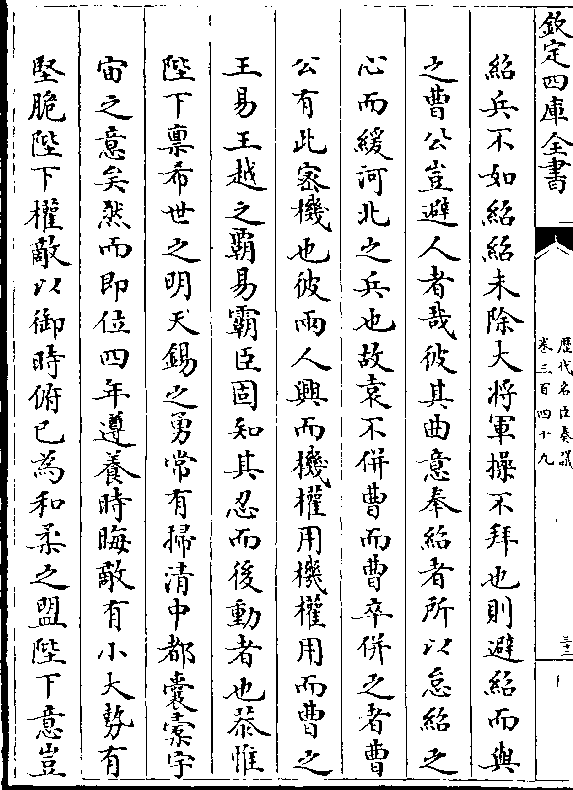 欽定四庫全書
歷代名臣奏議
卷三百四十九
三十二
紹兵不如紹紹未除大將軍操不拜也則避紹而與
之曹公豈避人者哉彼其曲意奉紹者所以怠紹之
心而緩河北之兵也故袁不併曹而曹卒併之者曹
公有此密機也彼兩人興而機權用機權用而曹之
王易王越之霸易霸臣固知其忍而後動者也恭惟
陛下稟希世之明天錫之勇常有掃清中都囊橐宇
宙之意矣然而即位四年遵養時晦敵有小大勢有
堅脆陛下權敵以御時俯已為和柔之盟陛下意豈